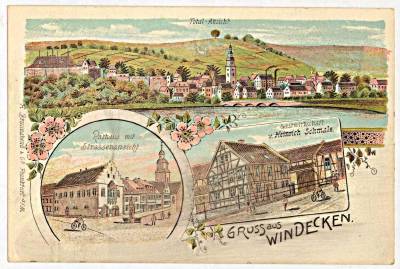 Total-Ansicht
Rathaus mit
Strassenansicht
Gastwirtschaft
v. Heinrich Schmalz.
GRUSS aus
WINDECKEN.